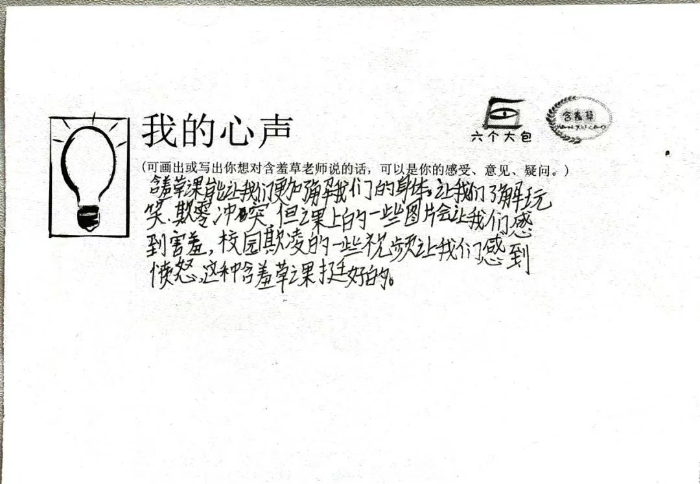 我的心声
六个大包
含羞草
(可画出或写出你想对含羞草老师说的话，可以是你的感受、意见、疑问。)
含羞草课能让我们更加了解我们的身体。让我们了解玩
笑、欺零、冲突，但课上的一些图片会让我们感
到害羞，校园欺凌的一些视频让我们感到
愤怒，这种含羞草课挺好的。